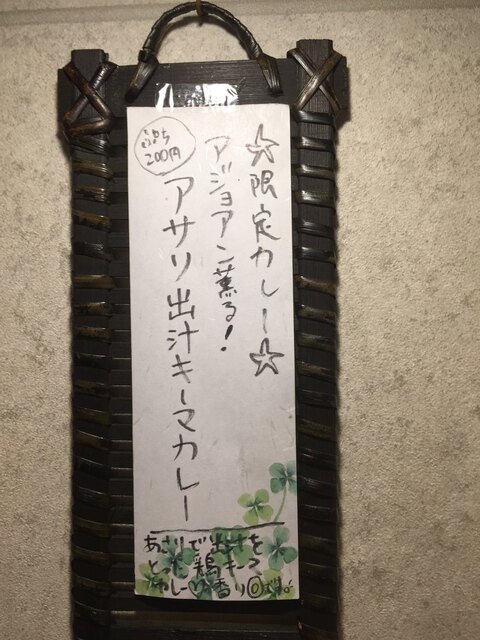 ☆限定カレー☆
アジョアン薫る!
ぷち
200円
アサリ出汁キーマカレー
あさりで出汁を
とった鶏キーマ
カレー
香り◎です。